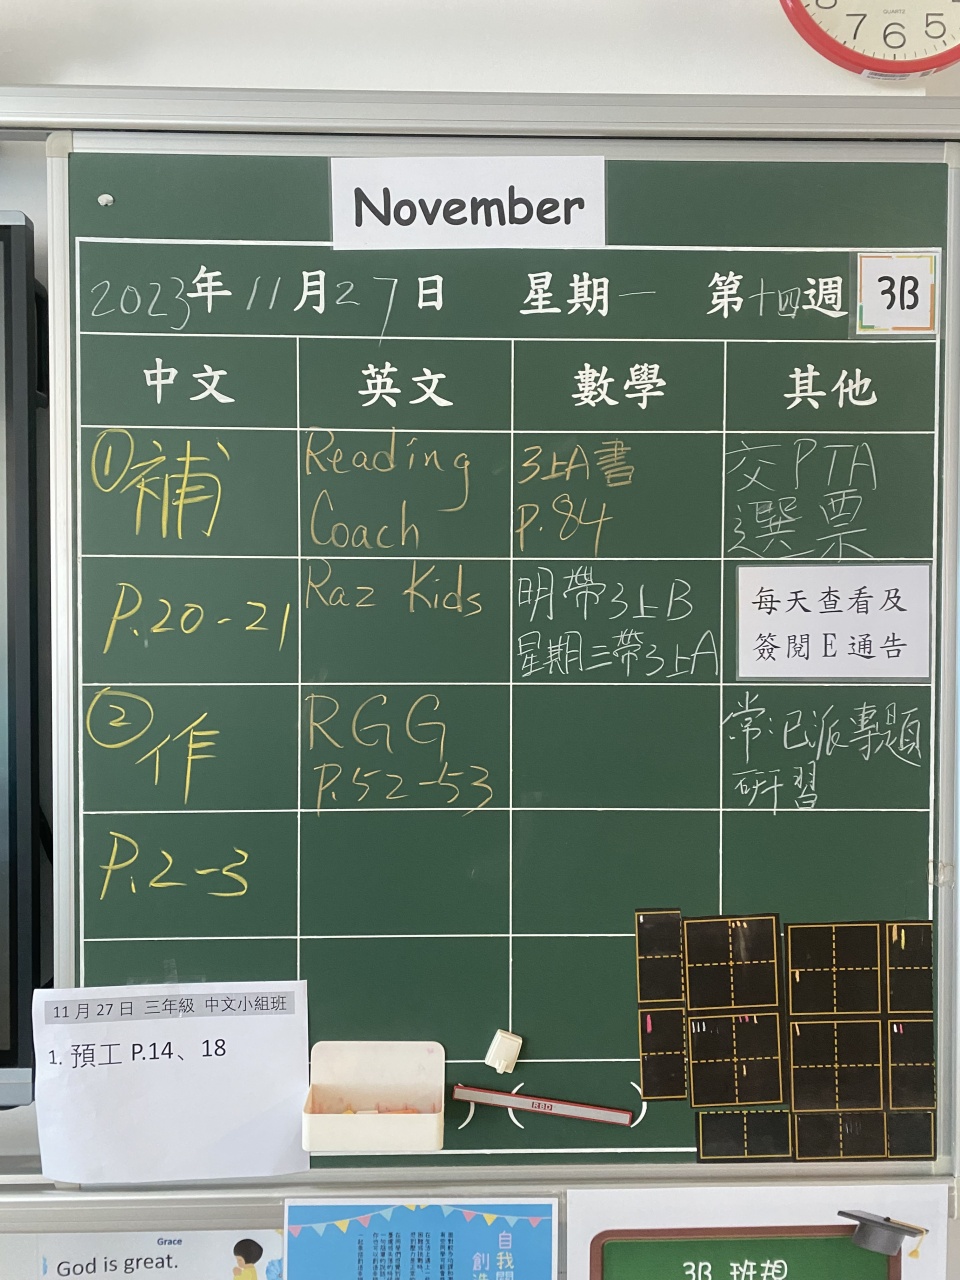 7 6 5
QUARTZ
November
2023年11月27日 星期一 第十四週 3B
中文 英文 數學 其他
①補
P.20-21
②作
P.2-3
Reading
Coach
Raz Kids
RGG
P.52-53
3上A書
P.84
明帶3上B
星期三帶3上A
交PTA
選票
每天查看及
簽閱E通告
常:已派專題
研習
11月27日 三年級 中文小組班
1. 預工 P.14、18
RED
) ( )
Grace
God is great.
3B 班